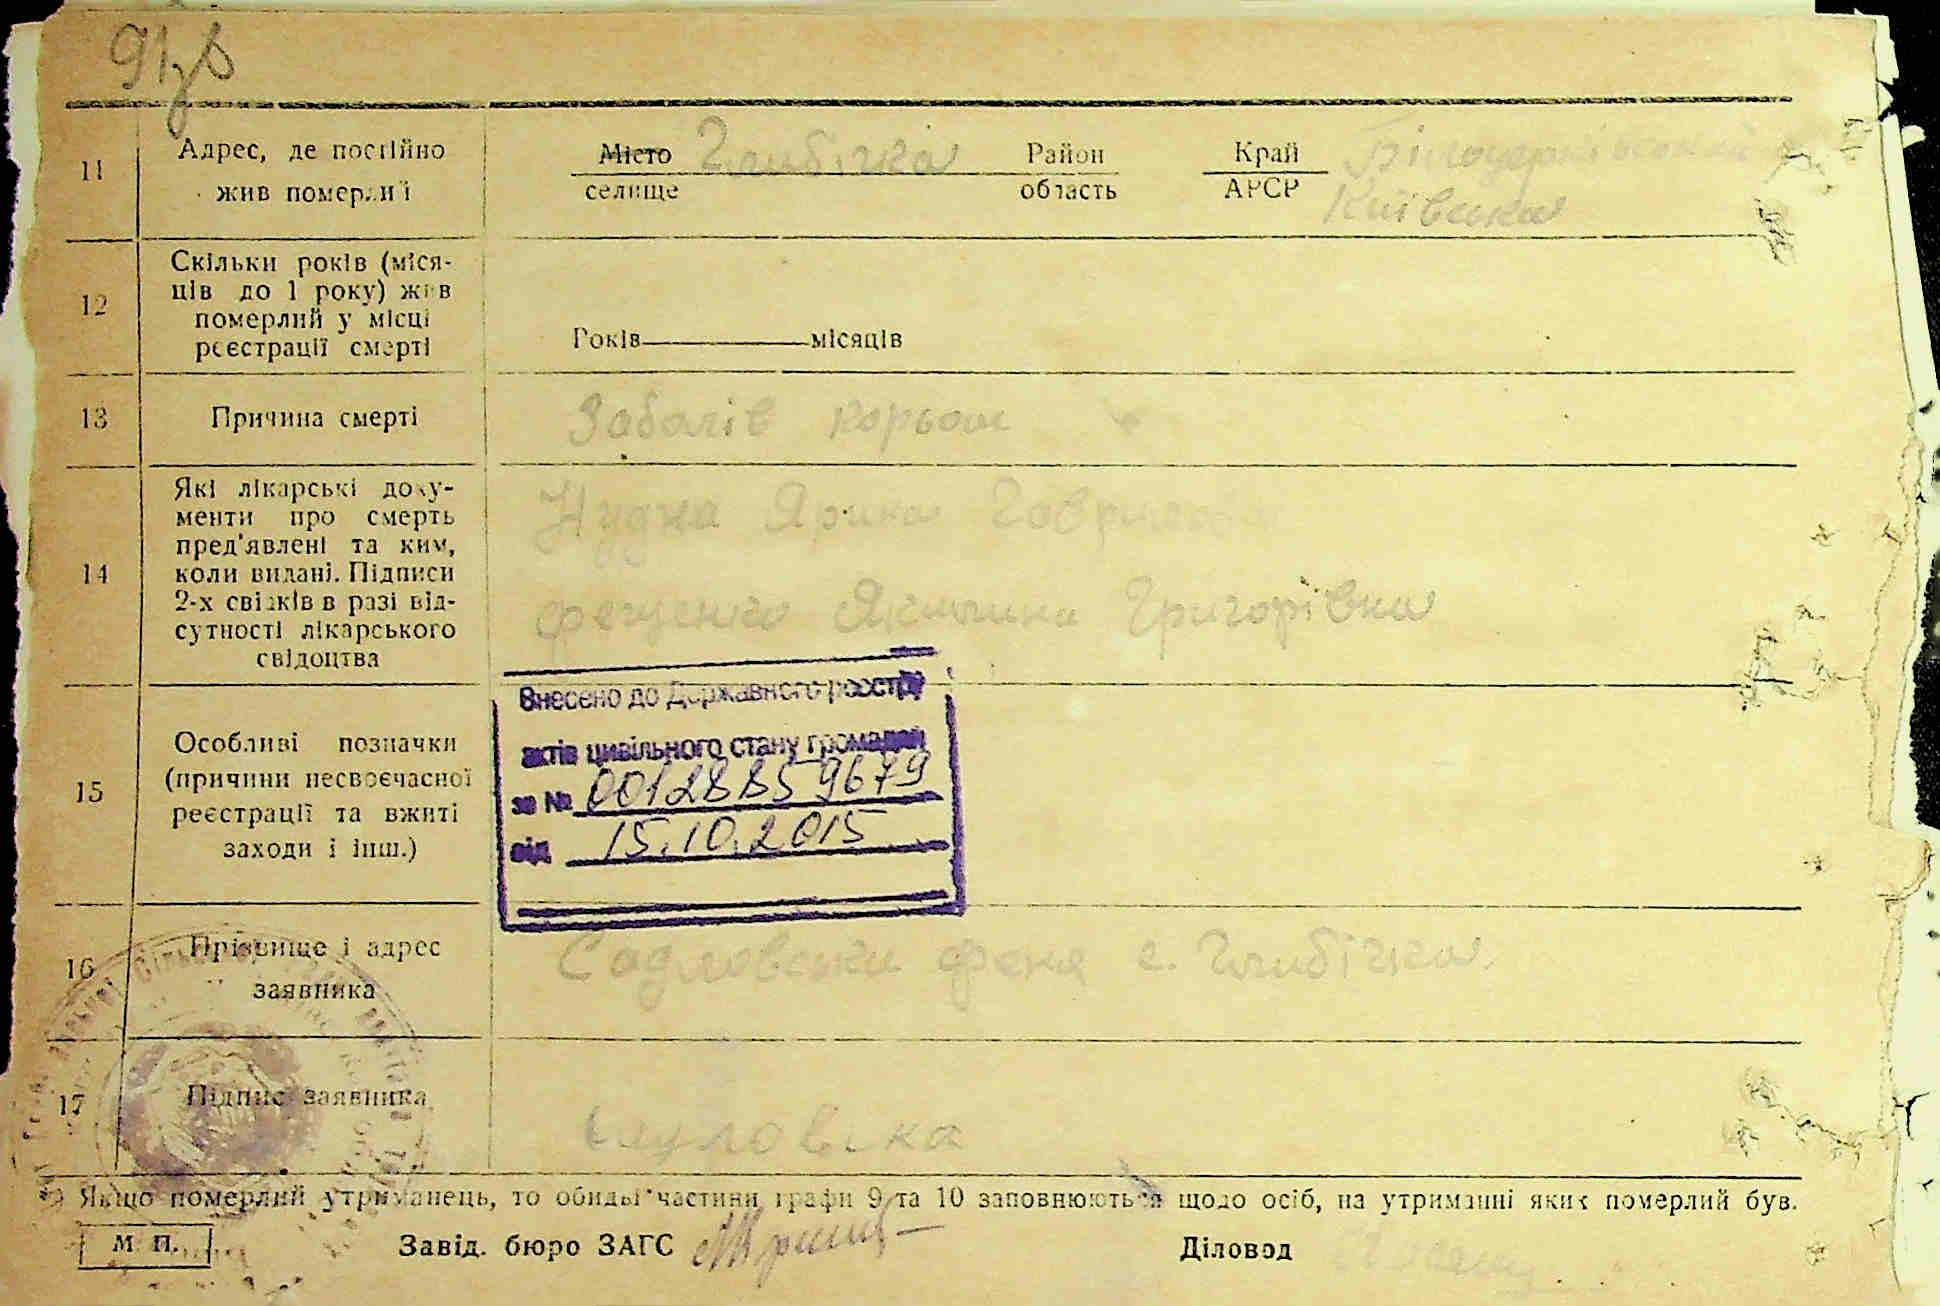 91зв
11
Адрес, де постійно
жив померлий
Місто Глибічка Район Край Білоцерківський
селище область АРСР Київська
12
Скільки років (міся-
ців до 1 року) жив
померлий у місці
реєстрації смерті
Років місяців
13
Причина смерті
Заболів корьом
14
Які лікарські доку-
менти про смерть
пред'явлені та ким,
коли видані. Підписи
2-х свідків в разі від-
сутності лікарського
свідоцтва
Нудна Ярина
Фещенко Якилина Григорівна
15
Особливі позначки
(причини несвоєчасної
реєстрації та вжиті
заходи і інш.)
Внесено до Державного реєстру
актів цивільного стану громадян
за № 00128859679
від 15.10.2015
16
Прізвище і адрес
заявника
Садловська Феня с. Глибічка
17
Підпис заявника
*) Якщо померлий утриманець, то обидві частини графи 9 та 10 заповнюються щодо осіб, на утриманні яких померлий був.
М П.
Завід. бюро ЗАГС
Діловод